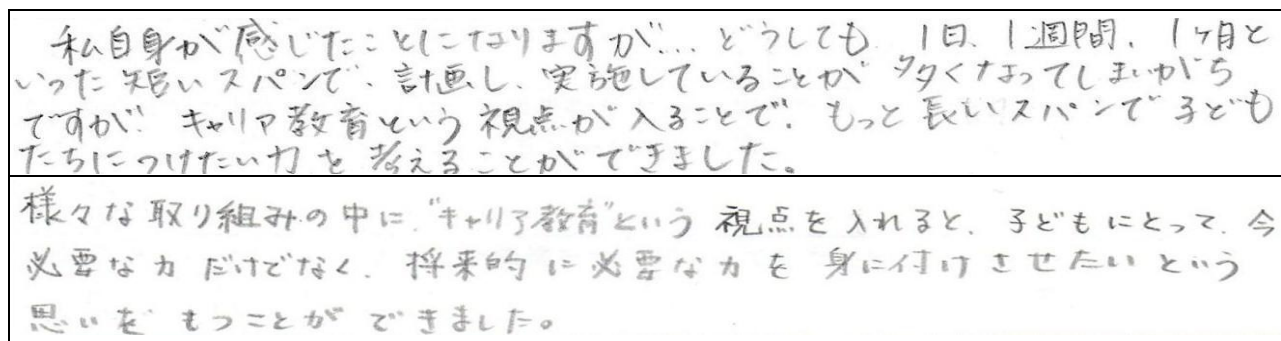 私自身が感じたことになりますが… どうしても、1日、1週間、1ヶ月と
いった短いスパンで、計画し、実施していることが多くなってしまいがち
ですが、キャリア教育という視点が入ることで、もっと長いスパンで子ども
たちにつけたい力を考えることができました。
様々な取り組みの中に、"キャリア教育"という視点を入れると、子どもにとって、今
必要な力だけでなく、将来的に必要な力を身に付けさせたいという
思いをもつことができました。